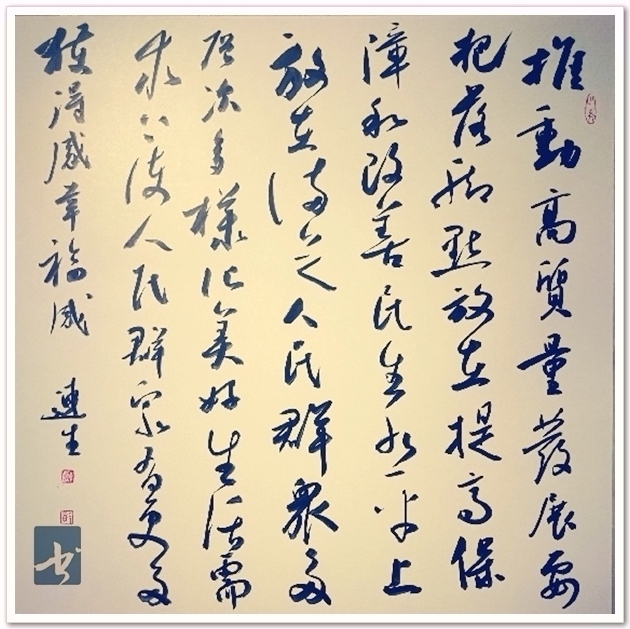 推動高質量發展要
把落腳點放在提高保
障和改善民生水平上
放在滿足人民群眾多
層次多樣化美好生活需
求上使人民群眾有更多
獲得感幸福感
連生
书